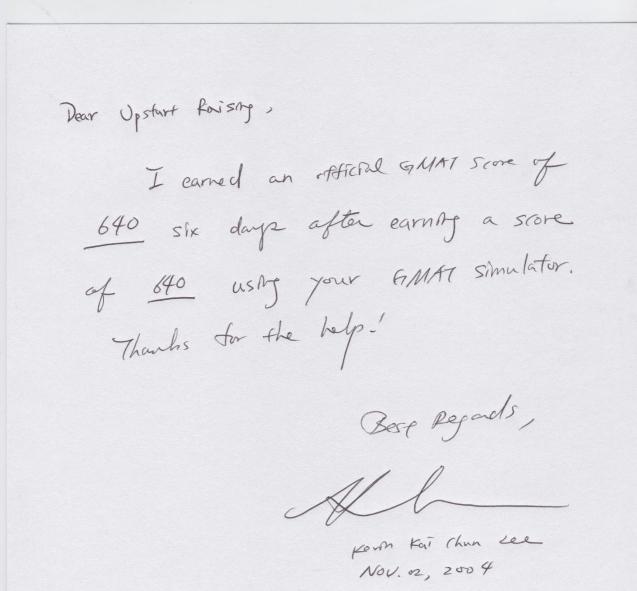 Dear Upstart Raising,
I earned an official GMAT score of
640 six days after earning a score
of 640 using your GMAT simulator.
Thanks for the help!
Best Regards,
Kevin Kai Chun Lee
Nov. 02, 2004